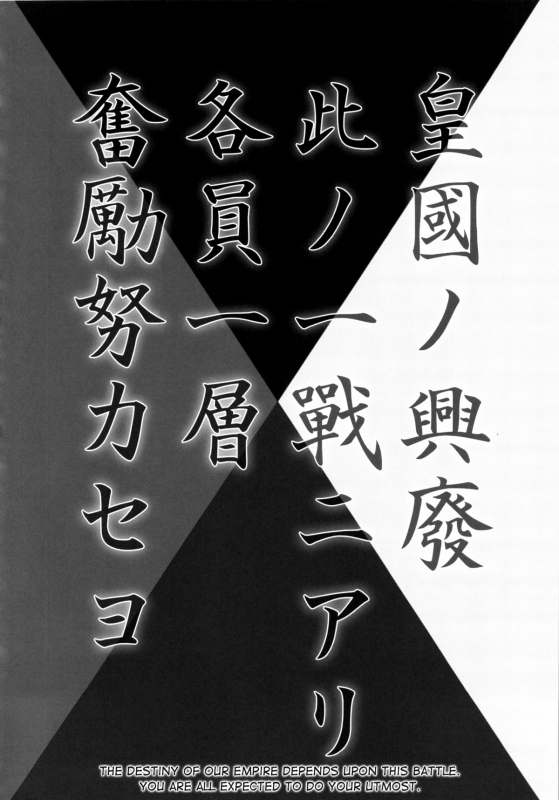 皇國ノ興廢
此ノ一戰ニアリ
各員一層
奮励努力セヨ
THE DESTINY OF OUR EMPIRE DEPENDS UPON THIS BATTLE.
YOU ARE ALL EXPECTED TO DO YOUR UTMOST.